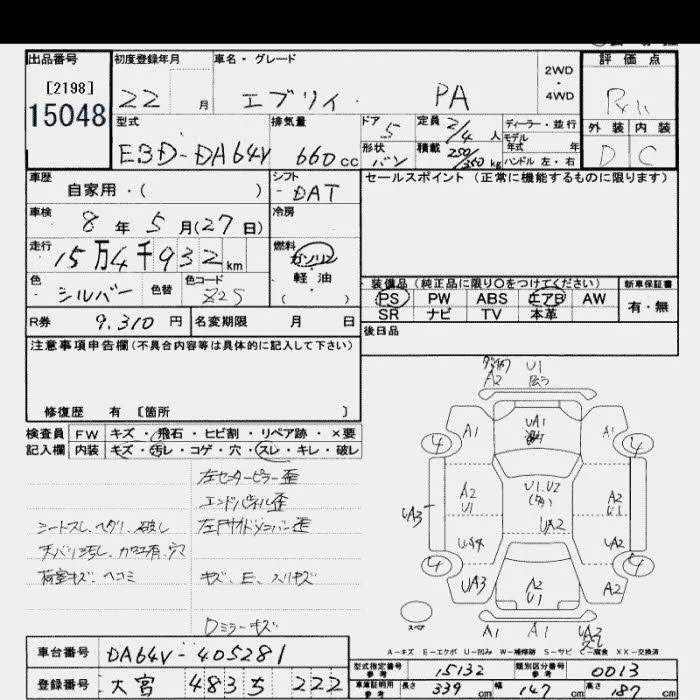 出品番号
[2198]
15048
初度登録年月
22 月
車名・グレード
エブリイ. PA
2WD
4WD
評価点
外装 内装
D C
型式
EBD-DA64V
排気量
660cc
ドア 5
形状 バン
定員 2/4 人
積載 250/350 kg
ディーラー・並行
モデル年式 年
ハンドル 左・右
車歴
自家用・( )
シフト
DAT
セールスポイント(正常に機能するものに限ります)
車検
8年5月(27日)
冷房
走行
15万4千932km
燃料
ガソリン
軽油
( )
色
シルバー
色替
色コード
Z2S
装備品(純正品に限り○をつけてください)
PS PW ABS エアB AW
SR ナビ TV 本革
新車保証書
有・無
R券 9.310円
名変期限 月 日
後日品
注意事項申告欄(不具合内容等は具体的に記入して下さい)
修復歴 有 〔箇所 〕
検査員
記入欄
FW キズ・飛石・ヒビ割・リペア跡・×要
内装 キズ・汚レ・コゲ・穴・スレ・キレ・破レ
左センターピラー歪
エンドパネル歪
シートスレ、ヘタリ、破レ
天バリ汚レ、カロス有、穴
荷室キズ、ヘコミ
キズ、E、スリキズ
Dミラーキズ
U1
A2
UA1
A1
A1
4
4
A2
U1
U1.U2
A2
U1
UA3
UA4
UA2
UA2
4
4
UA3
A2
U1
A2
A1
U1
UA2
スペア
A-キズ E-エクボ U-凹み W-補修跡 S-サビ C-腐食 XX-交換済
車台番号
DA64V-405281
登録番号
大宮 483 う 222
型式指定番号
参考
15132
類別区分番号
参考
0013
車庫証明用
参考
長さ 339cm
幅 147cm
高さ 187cm